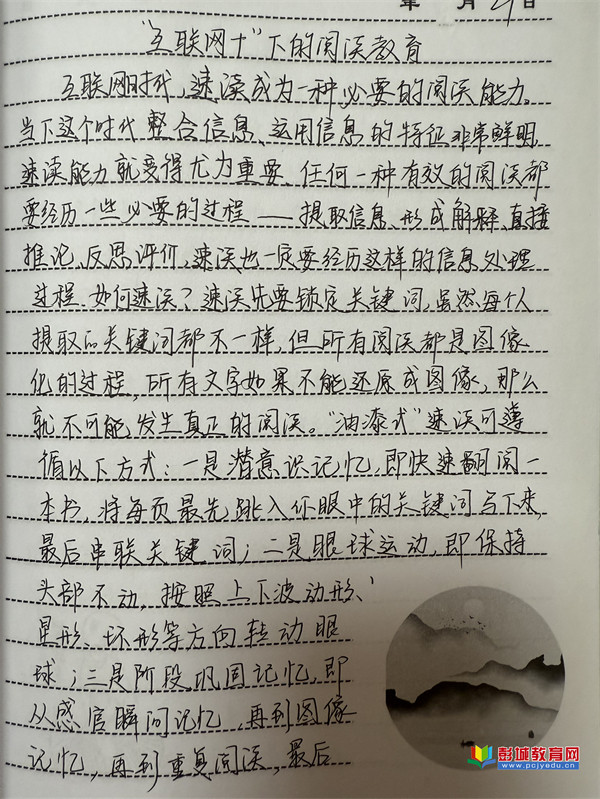 年 月 29日
"互联网+"下的阅读教育
互联网时代,速读成为一种必要的阅读能力。
当下这个时代整合信息、运用信息的特征非常鲜明,
速读能力就变得尤为重要。任何一种有效的阅读都
要经历一些必要的过程——提取信息、形成解释、直接
推论、反思评价,速读也一定要经历这样的信息处理
过程。如何速读?速读先要锁定关键词,虽然每个人
提取的关键词都不一样,但所有阅读都是图像
化的过程,所有文字如果不能还原成图像,那么
就不可能发生真正的阅读。"油漆式"速读可遵
循以下方式:一是潜意识记忆,即快速翻阅一
本书,将每页最先跳入你眼中的关键词写下来,
最后串联关键词;二是眼球运动,即保持
头部不动,按照上下波动形、
星形、环形等方向转动眼
球;三是阶段巩固记忆,即
从感官瞬间记忆,再到图像
记忆,再到重复阅读,最后
彭城教育网
www.pcjyedu.cn